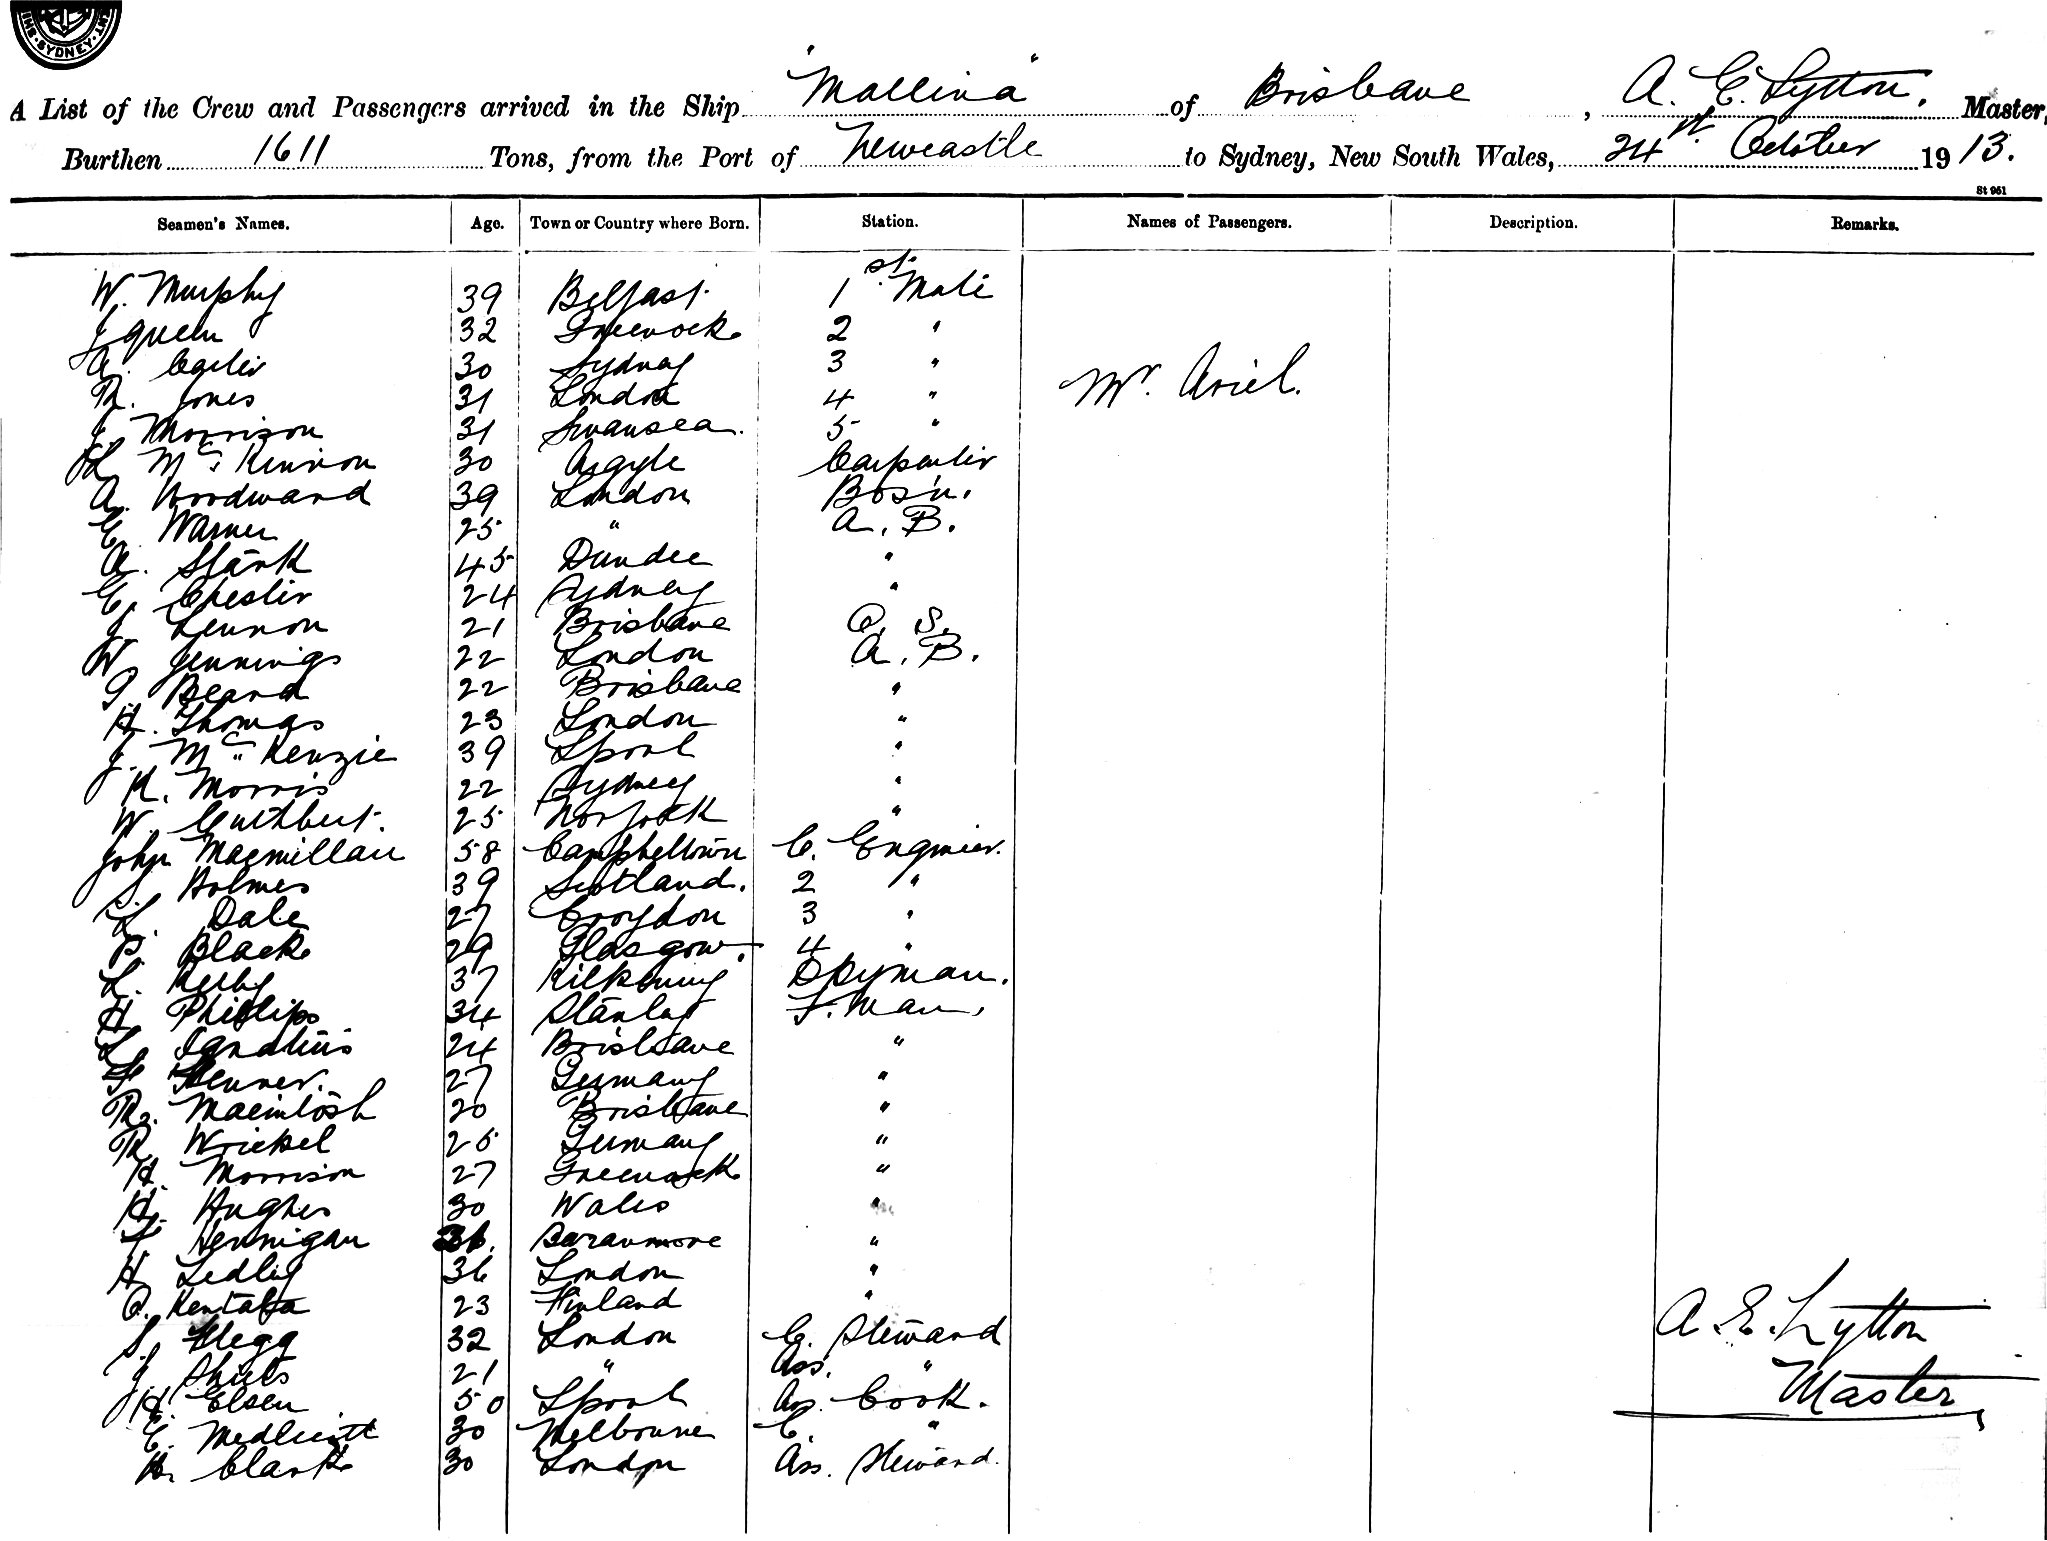 SYDNEY
A List of the Crew and Passengers arrived in the Ship "Mallina" of Brisbane, A. E. Lytton, Master,
Burthen 1611 Tons, from the Port of Newcastle to Sydney, New South Wales, 24st October 1913.
St 951
Seamen's Names. Age. Town or Country where Born. Station. Names of Passengers. Description. Remarks.
W. Murphy 39 Belfast. 1st. Mate
J Queen 32 Greenock 2 "
A. Carter 30 Sydney 3 "
Mr. Ariel.
R. Jones 31 London 4 "
J. Morrison 31 Swansea. 5 "
Mc Kinnon 30 Argyle Carpenter
A. Woodward 39 London Bos'n.
C. Warner 25 " A. B.
A. Stark 45 Dundee "
C. Chester 24 Sydney "
J Lennon 21 Brisbane O. S.
W. Jennings 22 London A. B.
G Beard 22 Brisbane "
H. Thomas 23 London "
J. Mc Kenzie 39 Lpool "
K. Morris 22 Sydney "
W. Cuthbert. 25 Norfolk "
John Macmillan 58 Campbeltown C. Engineer.
S. Holmes 39 Scotland. 2 "
L. Dale 27 Croydon 3 "
P. Black 29 Glasgow. 4 "
L. Kerby 37 Kilkenny Dkyman.
H Phillips 34 Stanley F. man.
24 Brisbane "
27 Germany "
R. Macintosh 20 Brisbane "
R Wrickel 25 Germany "
H. Morrison 27 Greenock "
H. Hughes 30 Wales "
F. Hennigan 36. "
H Ledley 36 London "
O. Kentala 23 Finland "
S. Clegg 32 London C. Steward
J Shiels 21 " Ass. "
H Elsen 50 Lpool Ass. Cook.
E. Medlicott 30 Melbourne C. "
H. Clark 30 London Ass. Steward.
A. E. Lytton
Master